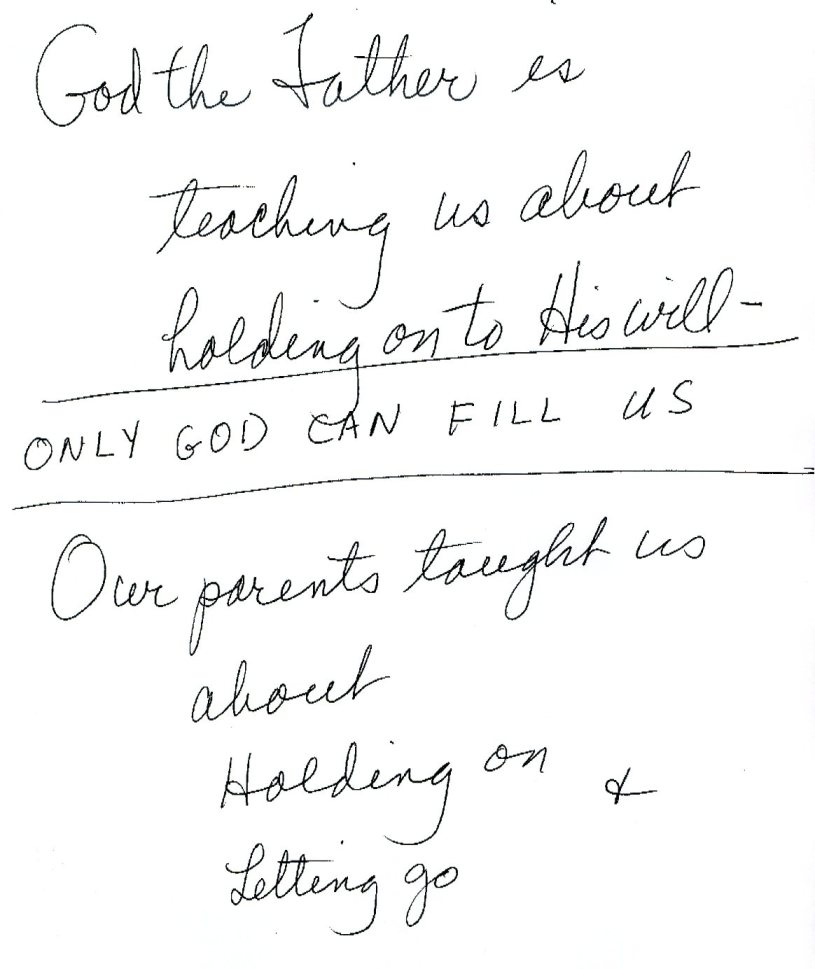 God the Father is
teaching us about
holding on to His will -
ONLY GOD CAN FILL US
Our parents taught us
about
Holding on &
Letting go